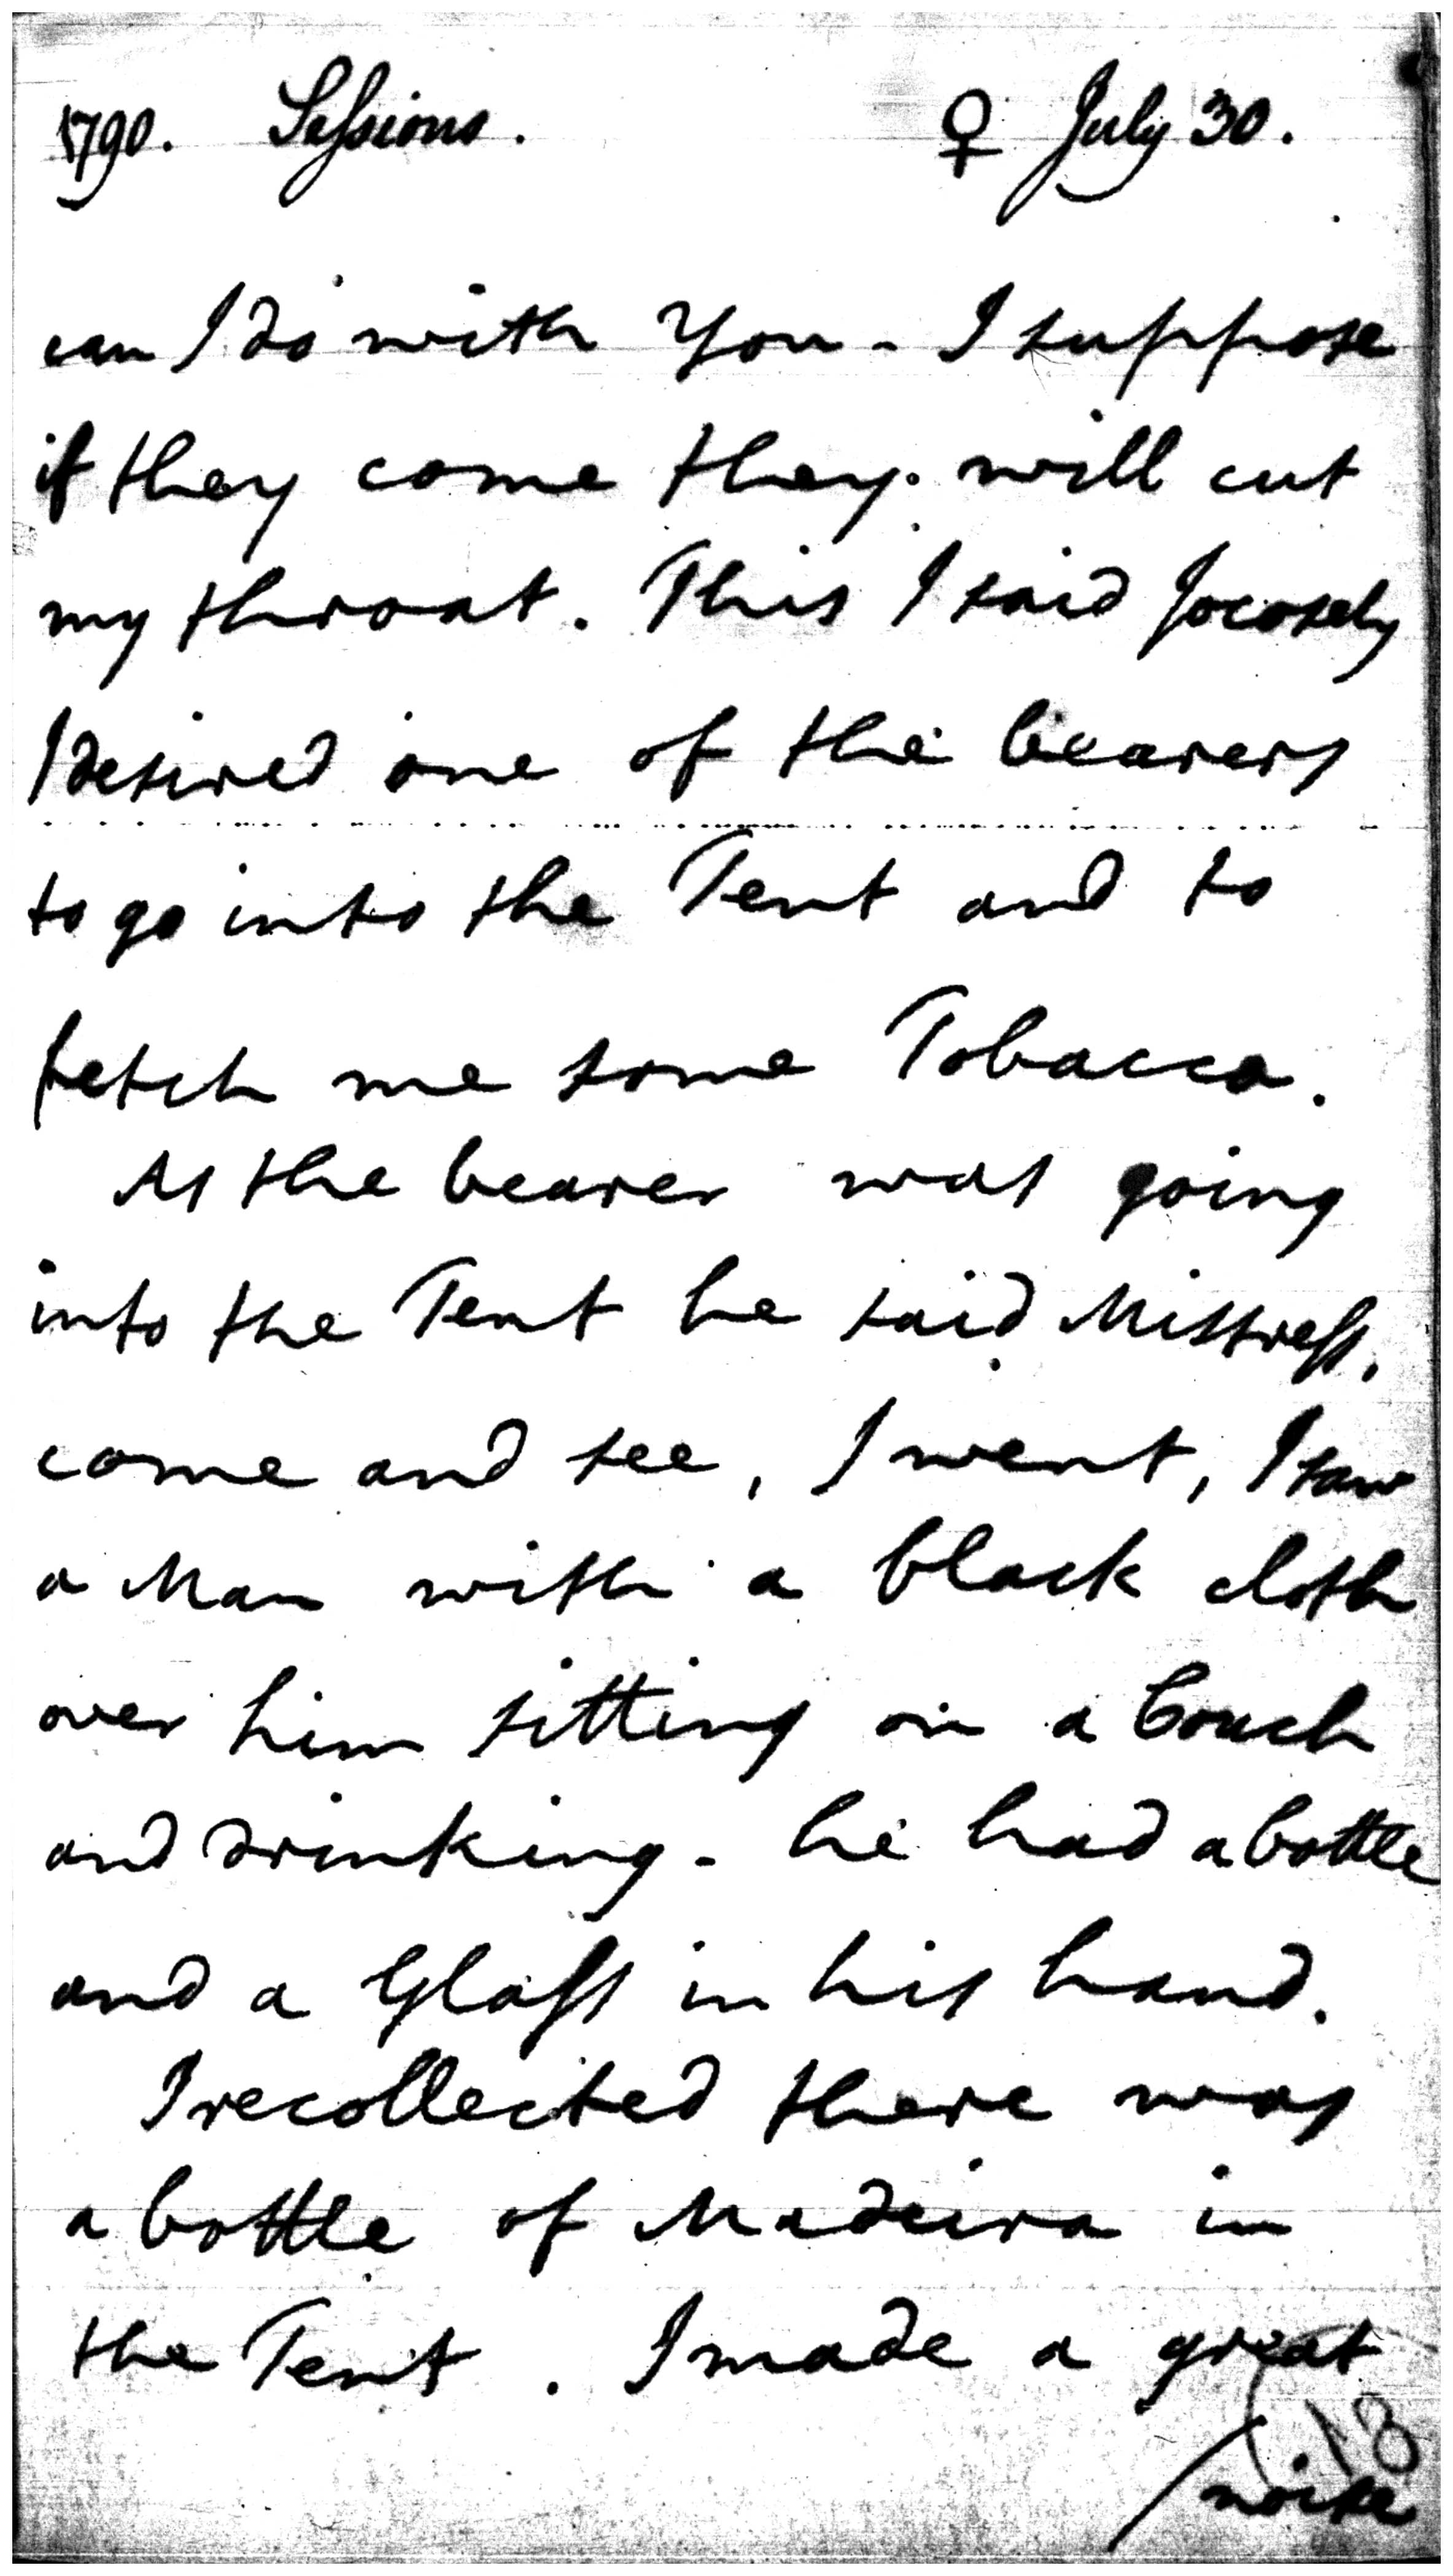 1790. Sessions. ♀ July 30.
can I do with You - I suppose
if they come they will cut
my throat. This I said Jocosely
I desired one of the bearers
to go into the Tent and to
fetch me some Tobacco.
As the bearer was going
into the Tent he said Mistress,
come and see, I went, I saw
a Man with a black cloth
over him sitting on a Couch
and drinking - he had a bottle
and a Glass in his hand.
I recollected there was
a bottle of Madeira in
the Tent. I made a great
18
/noise